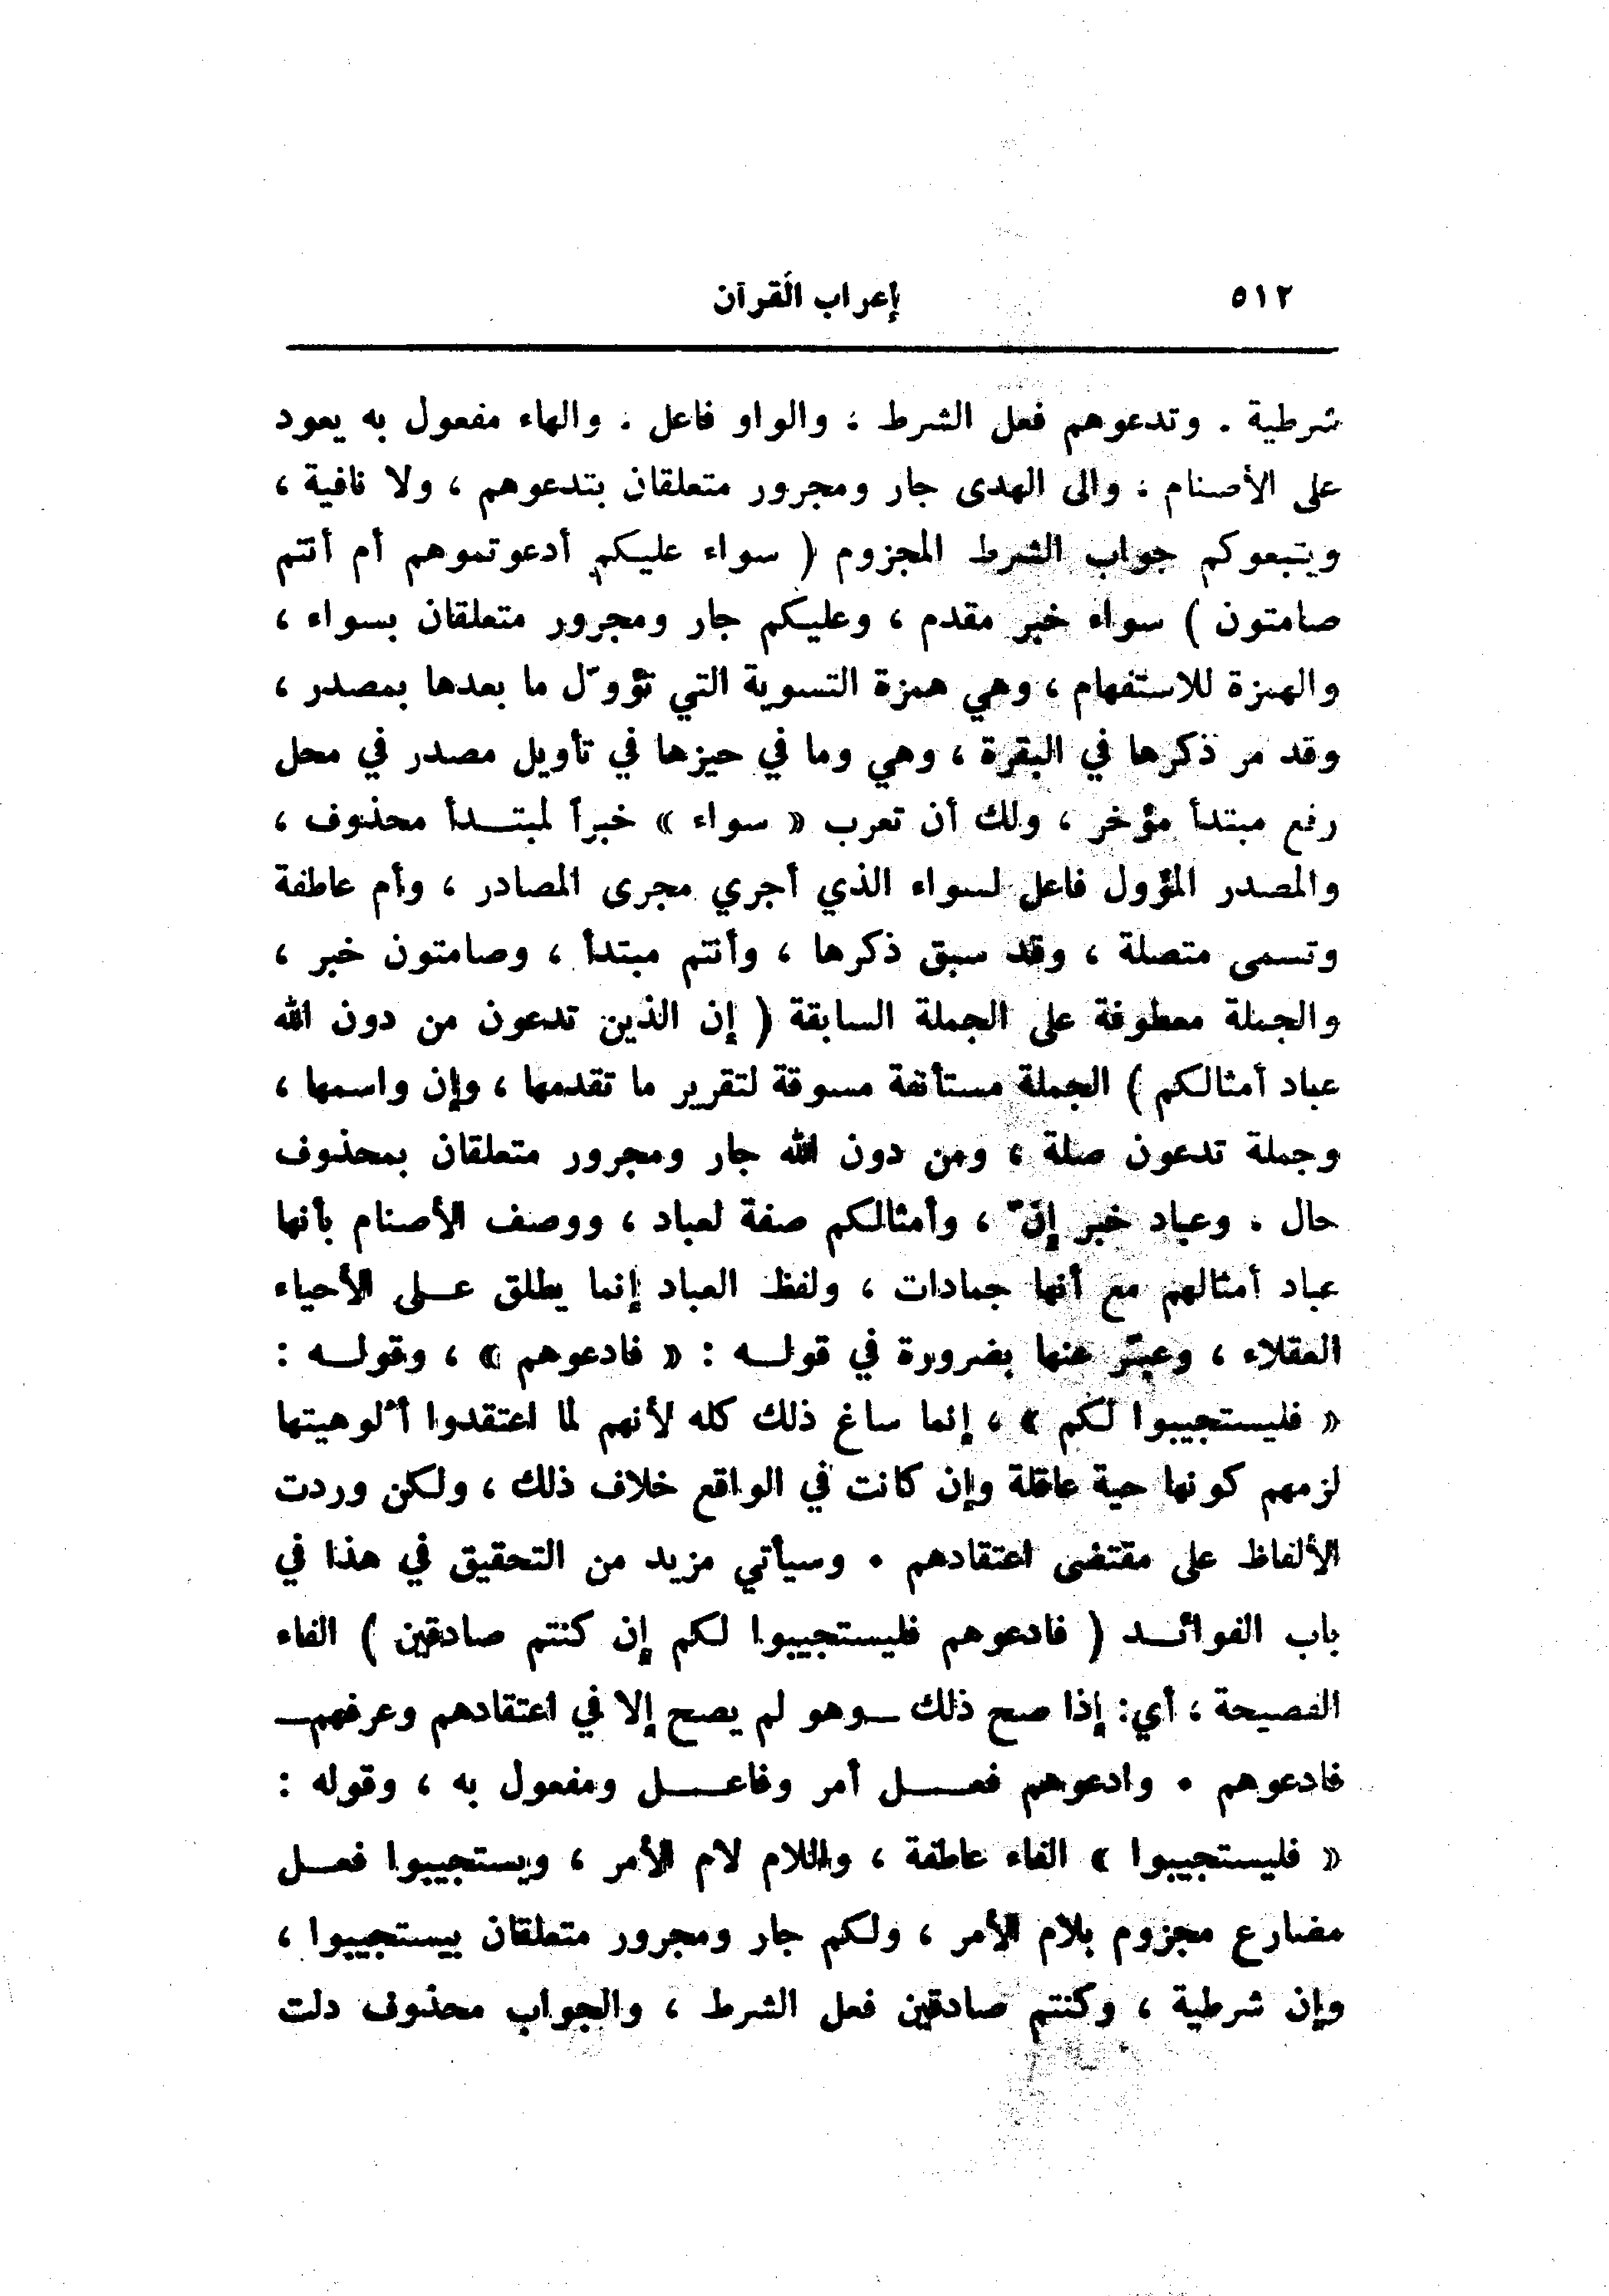 ٥١٢ إعراب القرآن
شرطية . وتدعوهم فعل الشرط ، والواو فاعل . والهاء مفعول به يعود
على الأصنام ، والى الهدى جار ومجرور متعلقان بتدعوهم ، ولا نافية ،
ويتبعوكم جواب الشرط المجزوم ( سواء عليكم أدعوتموهم أم أنتم
صامتون ) سواء خبر مقدم ، وعليكم جار ومجرور متعلقان بسواء ،
والهمزة للاستفهام ، وهي همزة التسوية التي تؤوّل ما بعدها بمصدر ،
وقد مر ذكرها في البقرة ، وهي وما في حيزها في تأويل مصدر في محل
رفع مبتدأ مؤخر ، ولك أن تعرب « سواء » خبراً لمبتدأ محذوف ،
والمصدر المؤول فاعل لسواء الذي أجري مجرى المصادر ، وأم عاطفة
وتسمى متصلة ، وقد سبق ذكرها ، وأنتم مبتدأ ، وصامتون خبر ،
والجملة معطوفة على الجملة السابقة ( إن الذين تدعون من دون الله
عباد أمثالكم ) الجملة مستأنفة مسوقة لتقرير ما تقدمها ، وإن واسمها ،
وجملة تدعون صلة ، ومن دون الله جار ومجرور متعلقان بمحذوف
حال . وعباد خبر إنّ ، وأمثالكم صفة لعباد ، ووصف الأصنام بأنها
عباد أمثالهم مع أنها جمادات ، ولفظ العباد إنما يطلق على الأحياء
العقلاء ، وعبّر عنها بضرورة في قوله : « فادعوهم » ، وقوله :
« فليستجيبوا لكم » ، إنما ساغ ذلك كله لأنهم لما اعتقدوا أُلوهيتها
لزمهم كونها حية عاقلة وإن كانت في الواقع خلاف ذلك ، ولكن وردت
الألفاظ على مقتضى اعتقادهم . وسيأتي مزيد من التحقيق في هذا في
باب الفوائد ( فادعوهم فليستجيبوا لكم إن كنتم صادقين ) الفاء
الفصيحة ، أي: إذا صح ذلك ـ وهو لم يصح إلا في اعتقادهم وعرفهم ـ
فادعوهم . وادعوهم فعل أمر وفاعل ومفعول به ، وقوله :
« فليستجيبوا » الفاء عاطفة ، واللام لام الأمر ، ويستجيبوا فعل
مضارع مجزوم بلام الأمر ، ولكم جار ومجرور متعلقان بيستجيبوا ،
وإن شرطية ، وكنتم صادقين فعل الشرط ، والجواب محذوف دلت